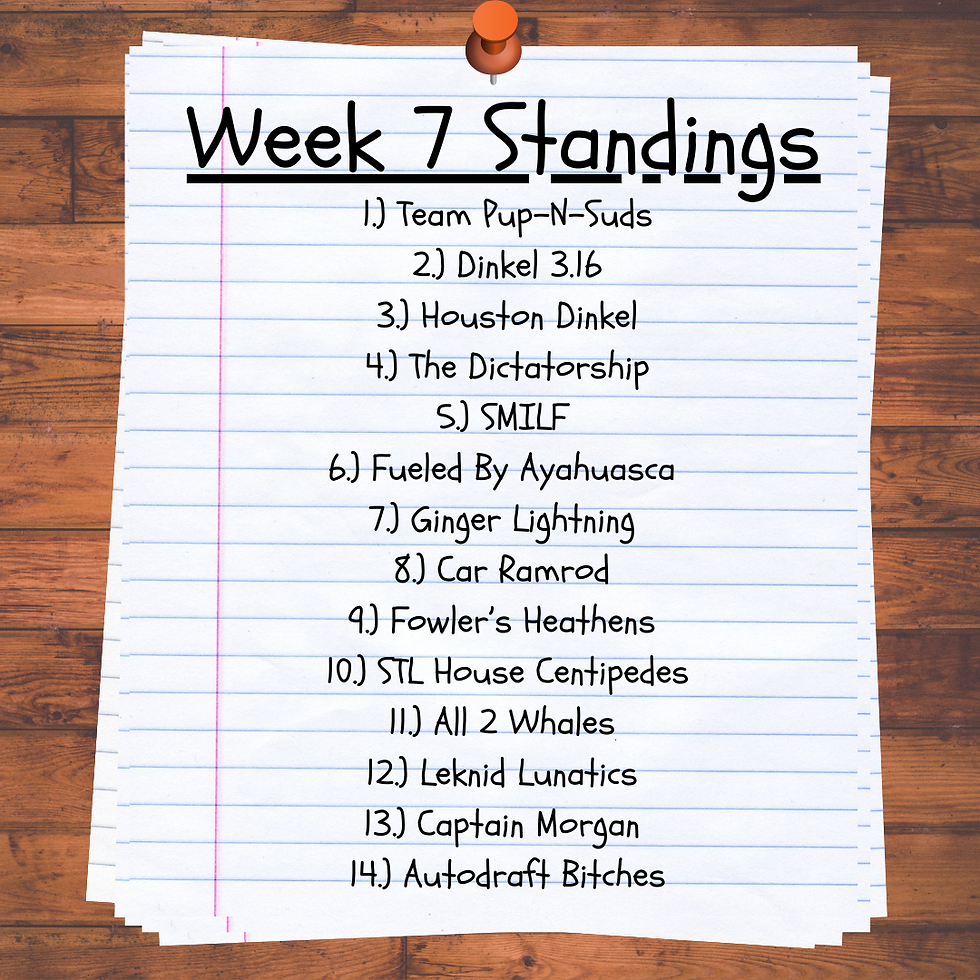 Week 7 Standings
1.) Team Pup-N-Suds
2.) Dinkel 3.16
3.) Houston Dinkel
4.) The Dictatorship
5.) SMILF
6.) Fueled By Ayahuasca
7.) Ginger Lightning
8.) Car Ramrod
9.) Fowler's Heathens
10.) STL House Centipedes
11.) All 2 Whales
12.) Leknid Lunatics
13.) Captain Morgan
14.) Autodraft Bitches